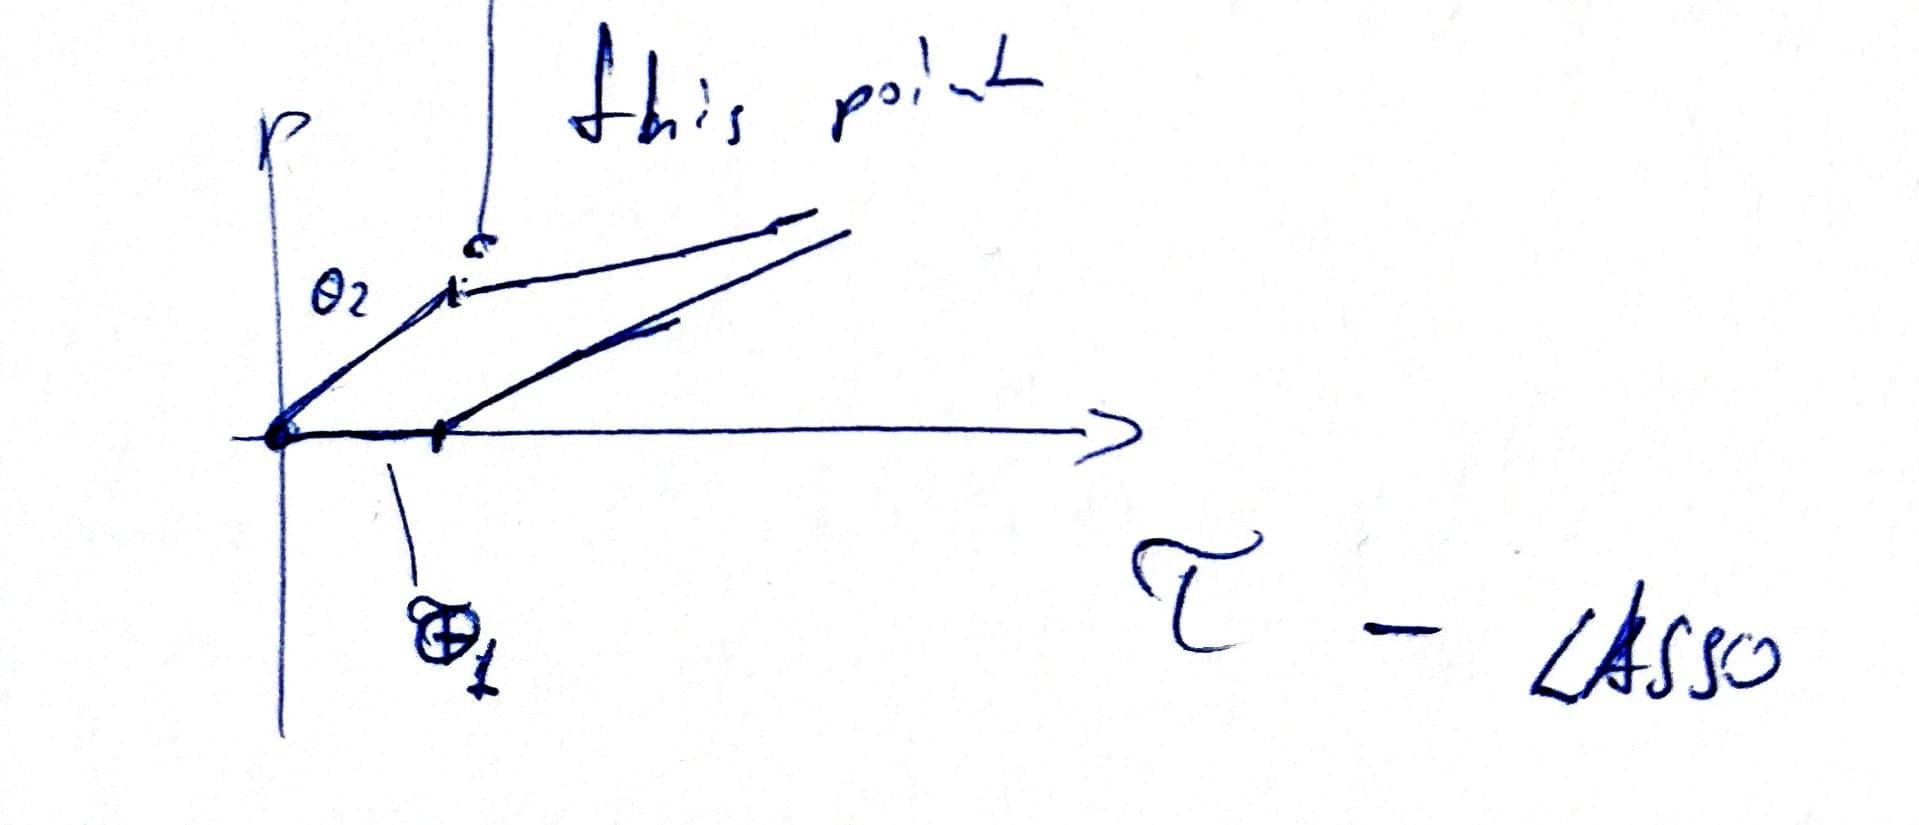 this point
θ₂
θ₁
τ - LASSO